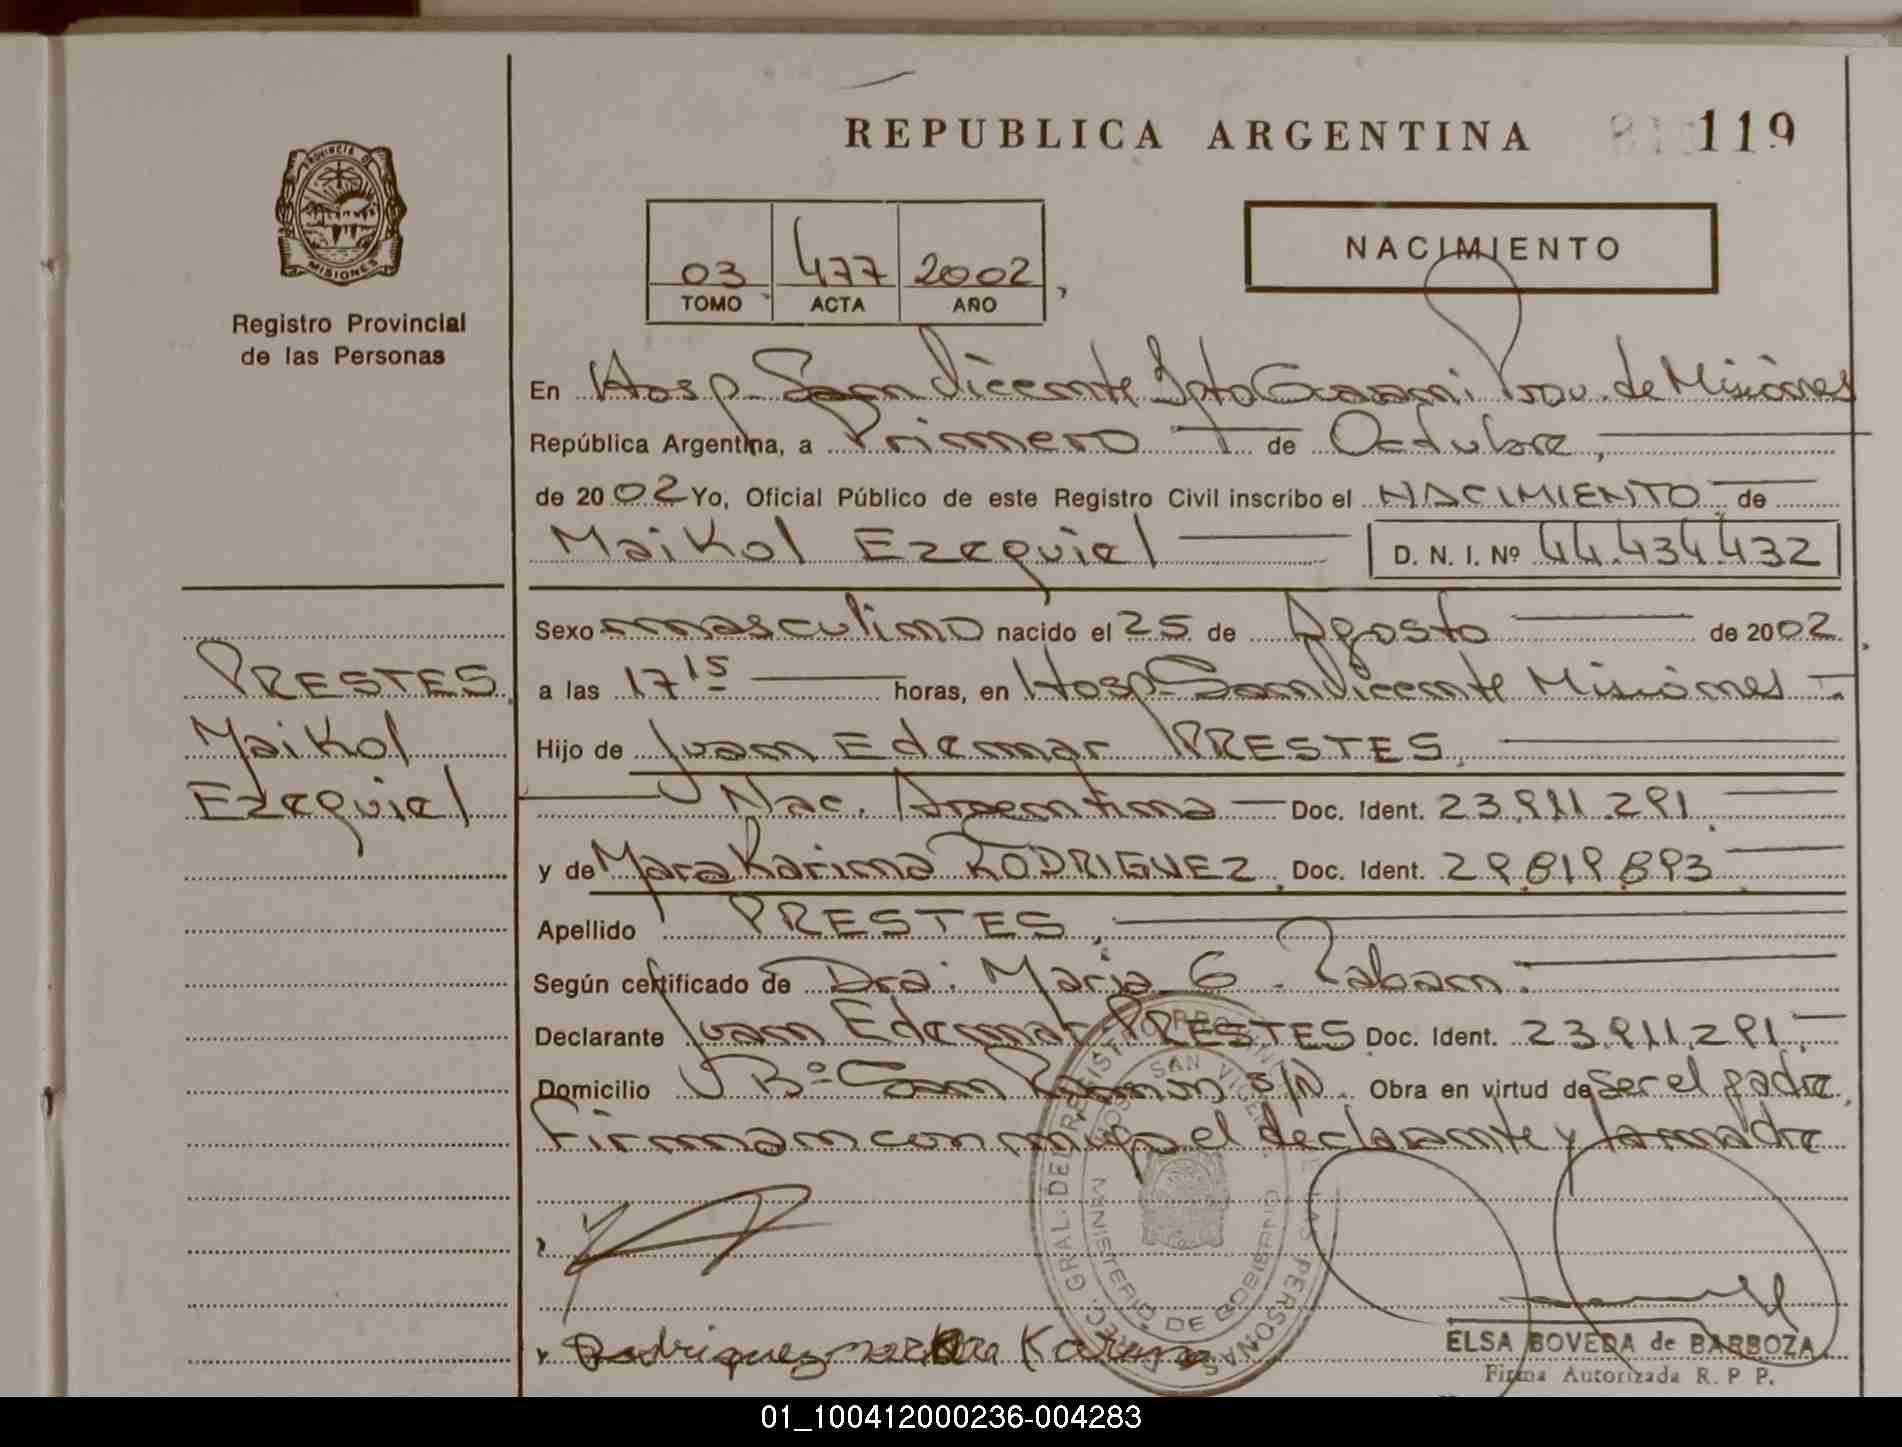 REPUBLICA ARGENTINA
119
PROVINCIA DE
MISIONES
Registro Provincial
de las Personas
03 477 2002
TOMO ACTA AÑO
NACIMIENTO
En Hosp. San Vicente Dpto Guarani Prov. de Misiones
República Argentina, a Primero de Octubre,
de 2002 Yo, Oficial Público de este Registro Civil inscribo el NACIMIENTO de
Maikol Ezequiel D. N. I. Nº 44.434.432
Sexo masculino nacido el 25 de Agosto de 2002
a las 17 15 horas, en Hosp. San Vicente Misiones
Hijo de Juan Edemar PRESTES
Nac. Argentina Doc. Ident. 23.911.291
y de Mara Karina RODRIGUEZ Doc. Ident. 29.819.893
Apellido PRESTES
Según certificado de Dra: Maria G.
Declarante Juan Edemar PRESTES Doc. Ident. 23.911.291
Domicilio Bº San Ramon s/N. Obra en virtud de ser el padre
Firman conmigo el declarante y la madre
PRESTES
Maikol
Ezequiel
DIREC. GRAL. DEL REGISTRO PROVINCIAL DE LAS PERSONAS
HOSP. SAN VICENTE
MINISTERIO DE GOBIERNO
Rodriguez mara Karina
ELSA BOVEDA de BARBOZA
Firma Autorizada R. P P.
01_100412000236-004283